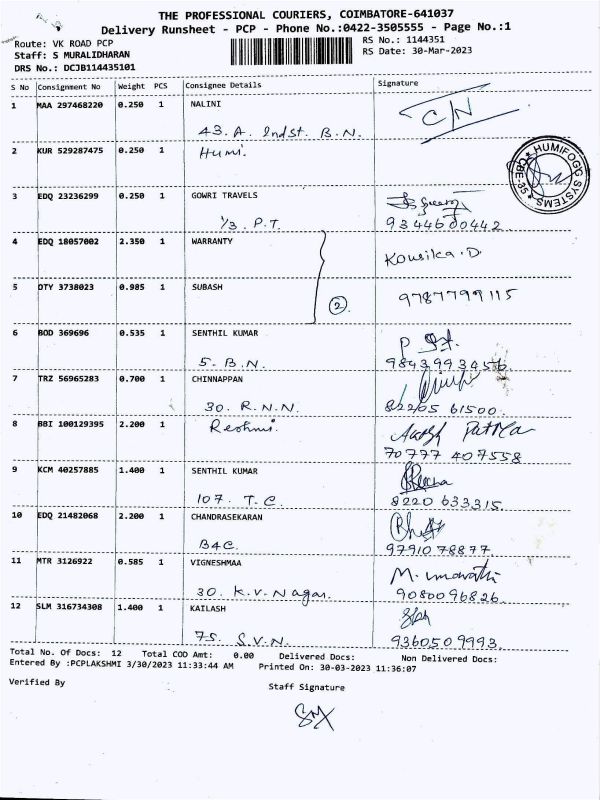 THE PROFESSIONAL COURIERS, COIMBATORE-641037
Delivery Runsheet - PCP - Phone No.:0422-3505555 - Page No.:1
Route: VK ROAD PCP
Staff: S MURALIDHARAN
DRS No.: DCJB114435101
RS No.: 1144351
RS Date: 30-Mar-2023
S No Consignment No Weight PCS Consignee Details Signature
1 MAA 297468220 0.250 1 NALINI
C/N
43. A. Indst. B.N.
2 KUR 529287475 0.250 1 Humi.
HUMIFOGG SYSTEMS
CBE-35
3 EDQ 23236299 0.250 1 GOWRI TRAVELS
1/3. P.T. 9344600442
4 EDQ 18057002 2.350 1 WARRANTY
Kousika.D
5 OTY 3738023 0.985 1 SUBASH
2 9787799115
6 BOD 369696 0.535 1 SENTHIL KUMAR
5. B.N. 9843993456
7 TRZ 56965283 0.700 1 CHINNAPPAN
30. R.N.N. 82205 61500
8 BBI 100129395 2.200 1 Reshmi.
70777 407558
9 KCM 40257885 1.400 1 SENTHIL KUMAR
107. T.C. 8220 633315
10 EDQ 21482068 2.200 1 CHANDRASEKARAN
B4C. 9791078877
11 MTR 3126922 0.585 1 VIGNESHMAA
M. umarathi
30. K.V. Nagar. 9080096826
12 SLM 316734308 1.400 1 KAILASH
75. S.V.N. 9360509993
Total No. Of Docs: 12 Total COD Amt: 0.00 Delivered Docs: Non Delivered Docs:
Entered By :PCPLAKSHMI 3/30/2023 11:33:44 AM Printed On: 30-03-2023 11:36:07
Verified By
Staff Signature